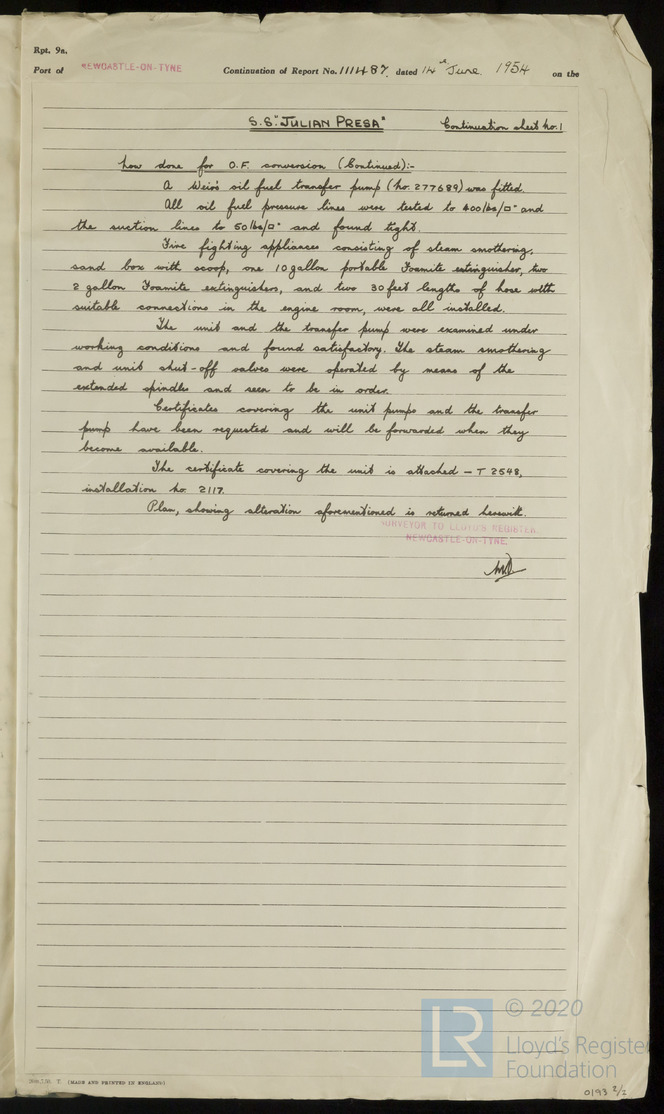 Rpt. 9a.
Port of NEWCASTLE-ON-TYNE Continuation of Report No. 111487 dated 14th June 1954 on the
S.S. "JULIAN PRESA" Continuation sheet No. 1
how done for O.F. conversion (Continued):-
A Weir's oil fuel transfer pump (No. 277689) was fitted.
All oil fuel pressure lines were tested to 400 lbs/□" and
the suction lines to 50 lbs/□" and found tight.
Fire fighting appliances consisting of steam smothering,
sand box with scoop, one 10 gallon portable Foamite extinguisher, two
2 gallon Foamite extinguishers, and two 30 feet lengths of hose with
suitable connections in the engine room, were all installed.
The unit and the transfer pump were examined under
working conditions and found satisfactory. The steam smothering
and unit shut-off valves were operated by means of the
extended spindles and seen to be in order.
Certificates covering the unit pumps and the transfer
pump have been requested and will be forwarded when they
become available.
The certificate covering the unit is attached - T 2548,
installation No. 2117.
Plan, showing alteration aforementioned is returned herewith.
SURVEYOR TO LLOYD'S REGISTER
NEWCASTLE-ON-TYNE
T. (MADE AND PRINTED IN ENGLAND)
LR
© 2020
Lloyd's Register
Foundation
0193 2/2